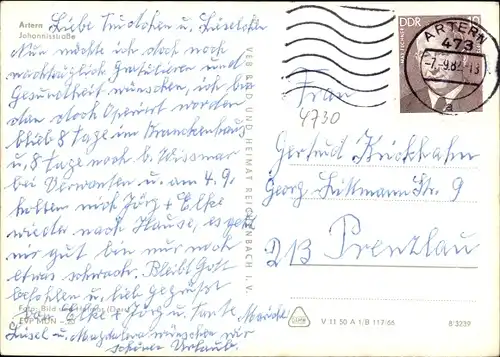 Artern
Johannisstraße
Liebe Trudchen u. Lieselotte
Nun möchte ich doch noch
nachträglich Gratulieren und
Gesundheit wünschen, ich bin
doch Operiert worden
blieb 8 Tage im Krankenhaus
u. 8 Tage noch b. Wismar
bei Verwanten u. am 4. 9.
holten mich Jörg + Elke
wieder nach Hause, es geht
mir gut bin nur noch
etwas schwach. Bleibt Gott
befohlen u. lieb gegrüßt
Elke + Jörg u. Tante
Liesel u. wünschen wir
schönen Urlaub.
VEB BILD UND HEIMAT REICHENBACH i. V.
DDR
10
ARTERN
473
-7.-9.82-13
a
Frau
4730
Gertrud Kuckhahn
Georg Str. 9
213 Prenzlau
V 11 50 A 1/B 117/66
8 3239